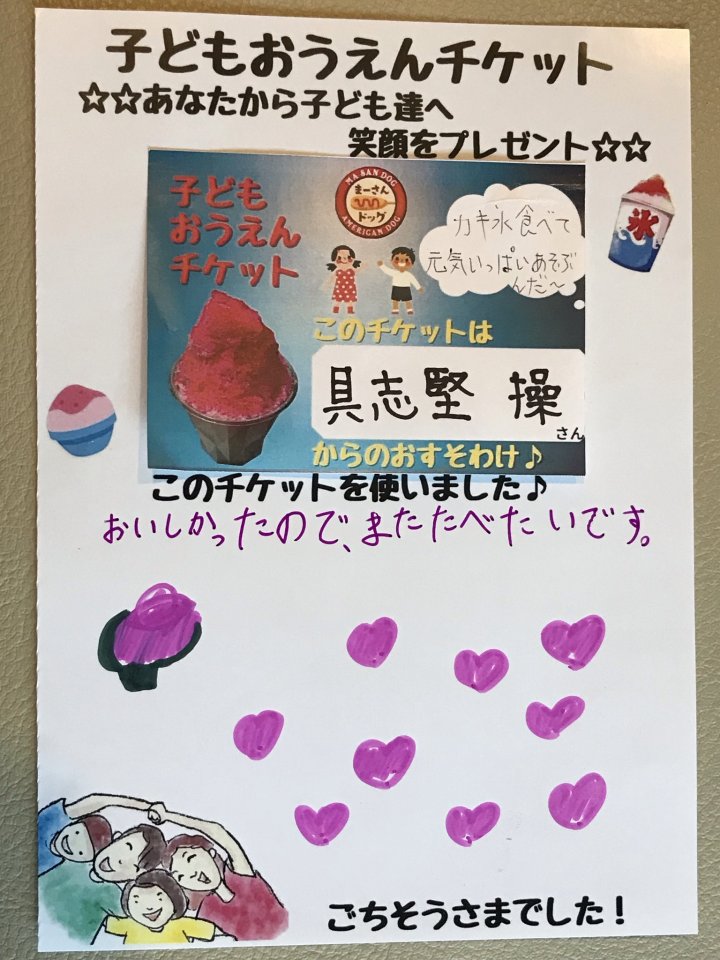 子どもおうえんチケット
☆☆あなたから子ども達へ
笑顔をプレゼント☆☆
子ども
おうえん
チケット
MA SAN DOG
まーさん
ドッグ
AMERICAN DOG
カキ氷食べて
元気いっぱいあそぶ
んだ~
氷
このチケットは
具志堅 操
さん
からのおすそわけ♪
このチケットを使いました♪
おいしかったので、またたべたいです。
ごちそうさまでした!